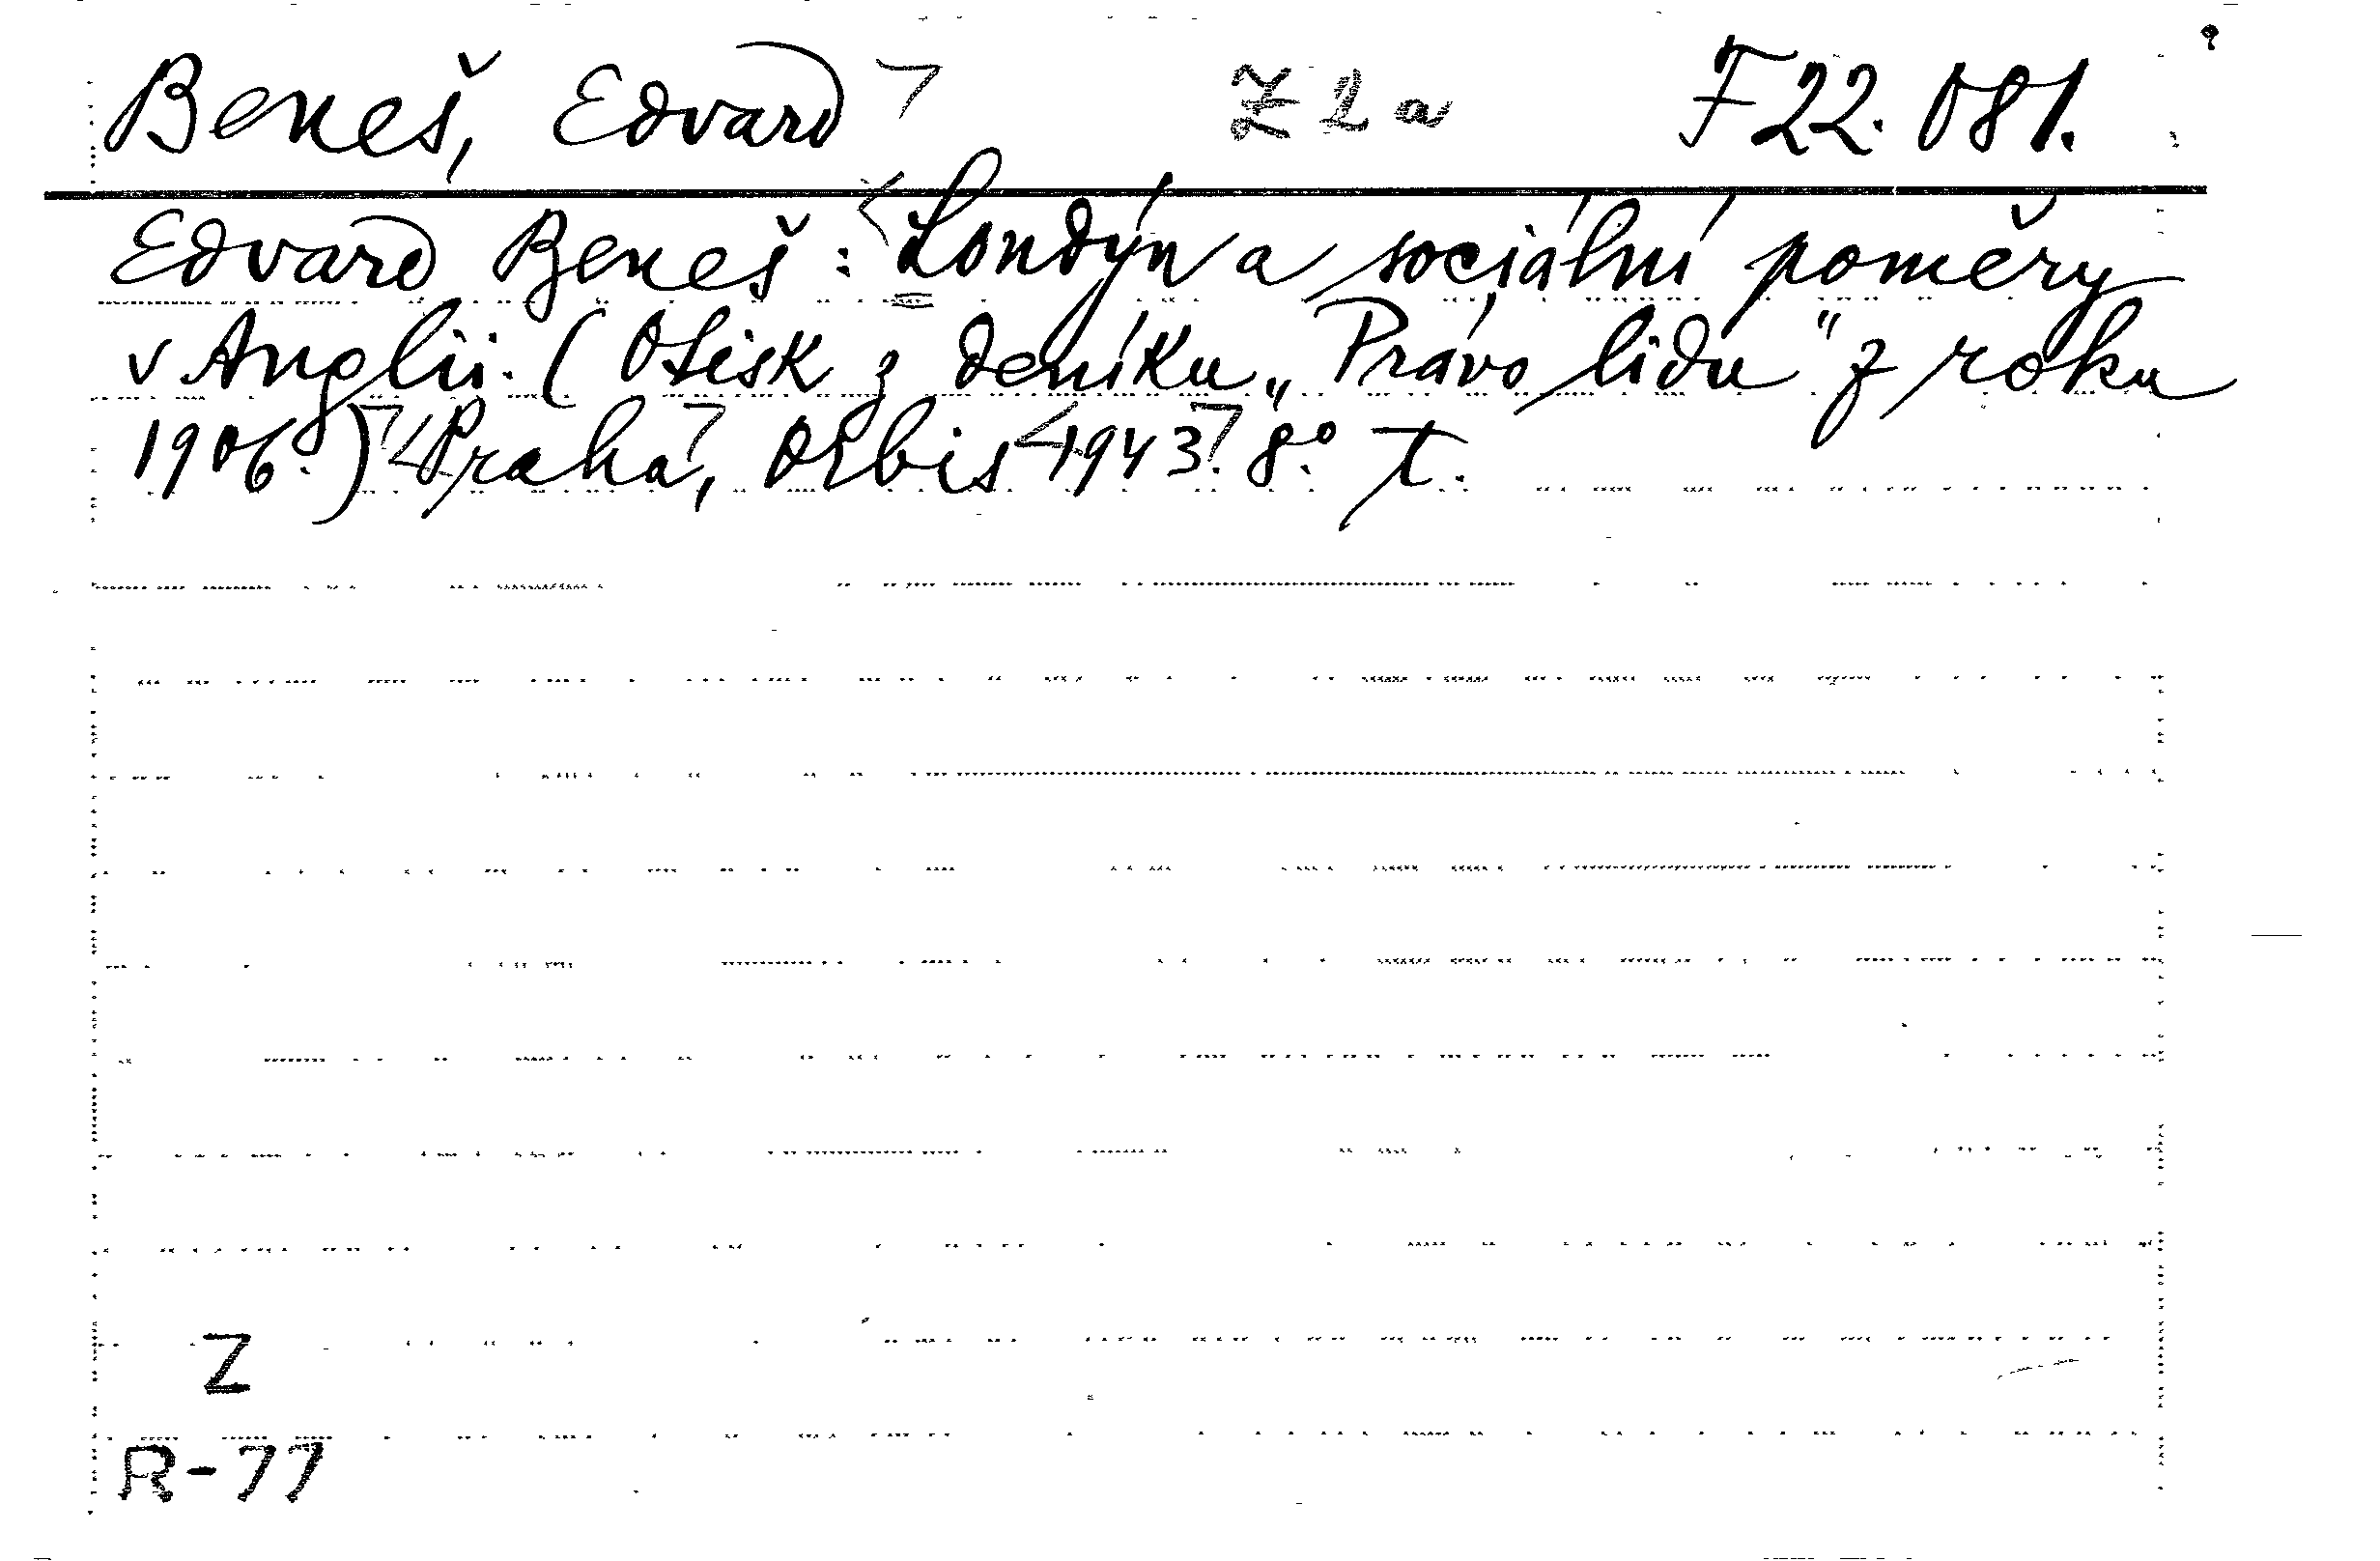 Beneš, Edvard Z 2 a F 22.081.
Edvard Beneš: Londýn a sociální poměry
v Anglii. (Otisk z deníku „Právo lidu" z roku
1906.) Praha, Orbis 1943. 8.° t.
Z
R-77